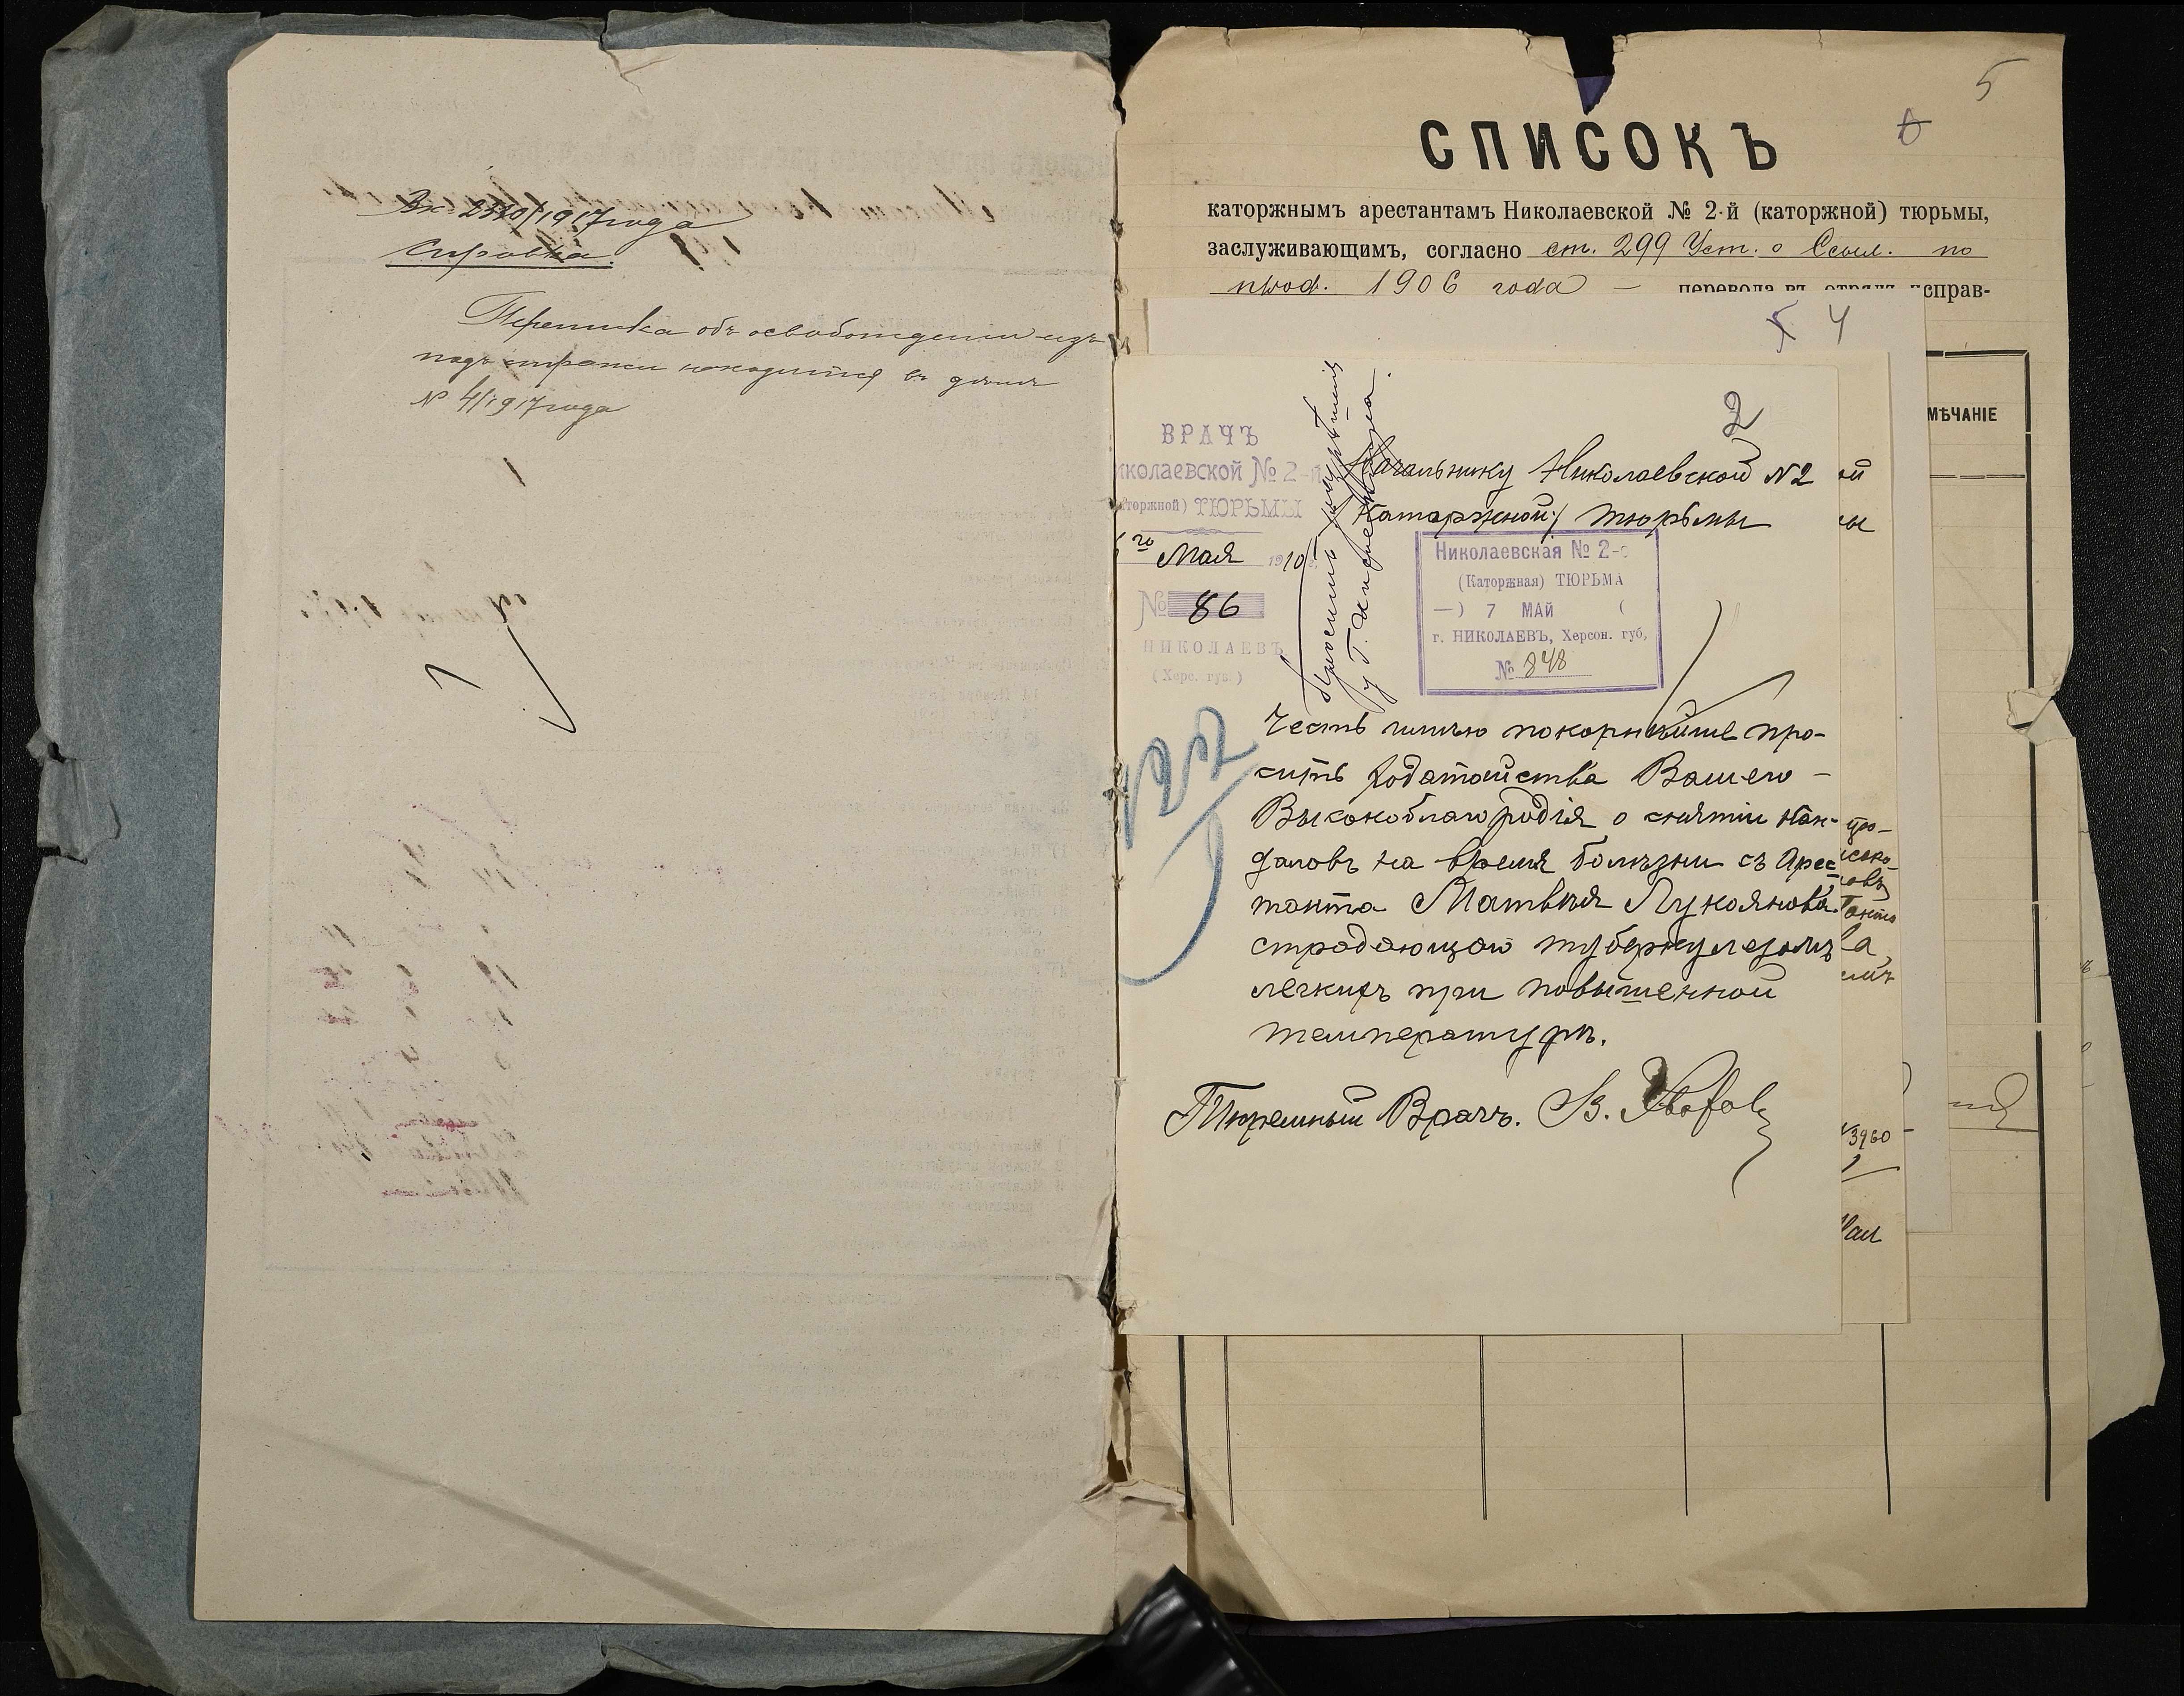 Вх. 2320/1917 года
Справка.
Переписка объ освобожденіи изъ
подъ стражи находится въ дѣлѣ
№ 4/1917 года
5
СПИСОКЪ
каторжнымъ арестантамъ Николаевской № 2-й (каторжной) тюрьмы,
заслуживающимъ, согласно ст. 299 Уст. о Ссыл. по
прод. 1906 года — перевода въ отрядъ исправ-
4
МѢЧАНІЕ
2
ВРАЧЪ
иколаевской № 2-й
аторжной) ТЮРЬМЫ
го Мая 1910
№ 86
НИКОЛАЕВЪ
(Херс. губ.)
Просить разрѣшенія
у Г. Инспектора.
Начальнику Николаевской N2
Каторжной/ тюрьмы
Николаевская № 2-я
(Каторжная) ТЮРЬМА
—) 7 МАЙ (
г. НИКОЛАЕВЪ, Херсон. губ.
№ 848
122
Честь имѣю покорнѣйше про-
сить ходатайства Вашего
Высокоблагородія о снятіи кан-
даловъ на время болѣзни съ Арес-
танта Матвѣя Лукоянова
страдающаго туберкулезомъ
легкихъ при повышенной
температурѣ.
Тюремный Врачъ.
3960